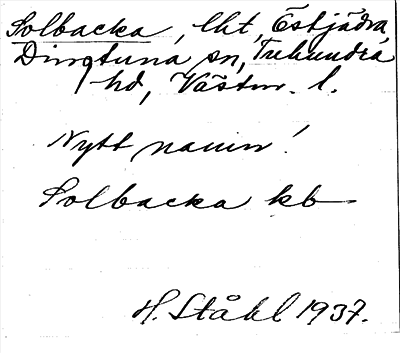 Solbacka, lht, Östjädra,
Dingtuna sn, Tuhundra
hd, Västm. l.
Nytt namn!
Solbacka kb
H. Ståhl 1937.